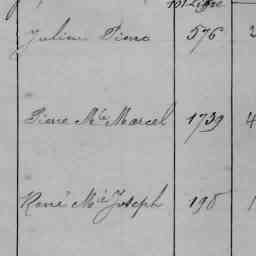 Julien Pierre 576 2
Pierre Mie Marcel 1739 4
René Mie Joseph 198 1